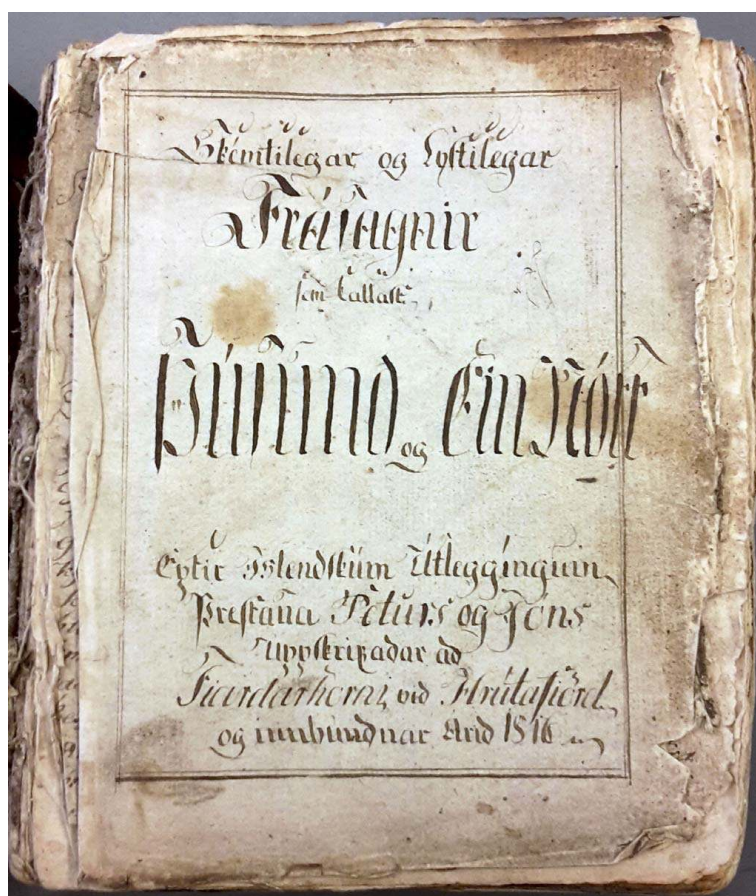 Skémtilegar og Lystilegar
Frásagnir
sem kallast
Þúsund og Ein Nótt
Eptir Íslendskum Útleggingum
Prestana Péturs og Jóns
uppskrifadar ad
Fiardarhorni vid Hrútafiörd
og innbundnar Arid 1816